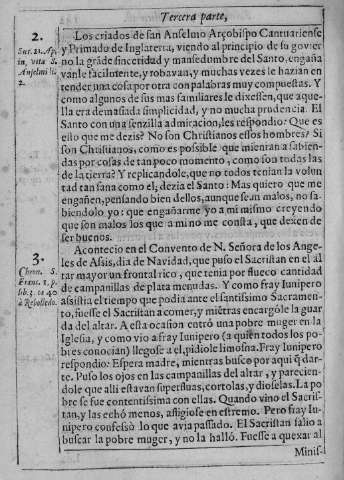 Tercera parte,
2.
Sur. 21. Ap.
in vita S.
Anselmi li.
2.
Los criados de san Anselmo Arçobispo Cantuariense
y Primado de Inglaterra, viendo al principio de su govier
no la grãde sinceridad y mansedumbre del Santo, engaña
vanle facilmente, y robavan, y muchas vezes le hazian en
tender una cosa por otra con palabras muy compuestas. Y
como algunos de sus mas familiares le dixessen, que aque-
lla era demasiada simplicidad, y no mucha prudencia. El
Santo con una senzilla admiracion, les respondio: Que es
esto que me dezis? No son Christianos essos hombres? Si
son Christianos, como es possible que mientan a sabien-
das por cosas de tan poco momento, como son todas las
de la tierra? Y replicandole, que no todos tenian la volun
tad tan sana como el, dezia el Santo: Mas quiero que me
engañen, pensando bien dellos, aunque sean malos, no sa-
biendolo yo: que engañarme yo a mi mismo creyendo
que son malos los que a mi no me consta, que dexen de
ser buenos.
3.
Chron. S.
Franc. 1. p.
lib. 3. co 40
à Rebolledo.
Acontecio en el Convento de N. Señora de los Ange-
les de Assis, dia de Navidad, que puso el Sacristan en el al
tar mayor un frontal rico, que tenia por flueco cantidad
de campanillas de plata menudas. Y como fray Iunipero
assistia el tiempo que podia ante el santissimo Sacramen-
to, fuesse el Sacristan a comer, y miẽtras encargóle la guar
da del altar. A esta ocasion entró una pobre muger en la
Iglesia, y como vio a fray Iunipero (a quien todos los po-
bres conocian) llegose a el, pidiole limosna. Fray Iunipero
respondio: Espera madre, mientras busco por aqui q̃ dar-
te. Puso los ojos en las campanillas del altar, y parecien-
dole que alli estavan superfluas, cortolas, y dioselas. La po
bre se fue contentissima con ellas. Quando vino el Sacris-
tan, y las echó menos, afligiose en estremo. Pero fray Iu-
nipero confessò lo que avia passado. El Sacristan salio a
buscar la pobre muger, y no la halló. Fuesse a quexar al
Minis-